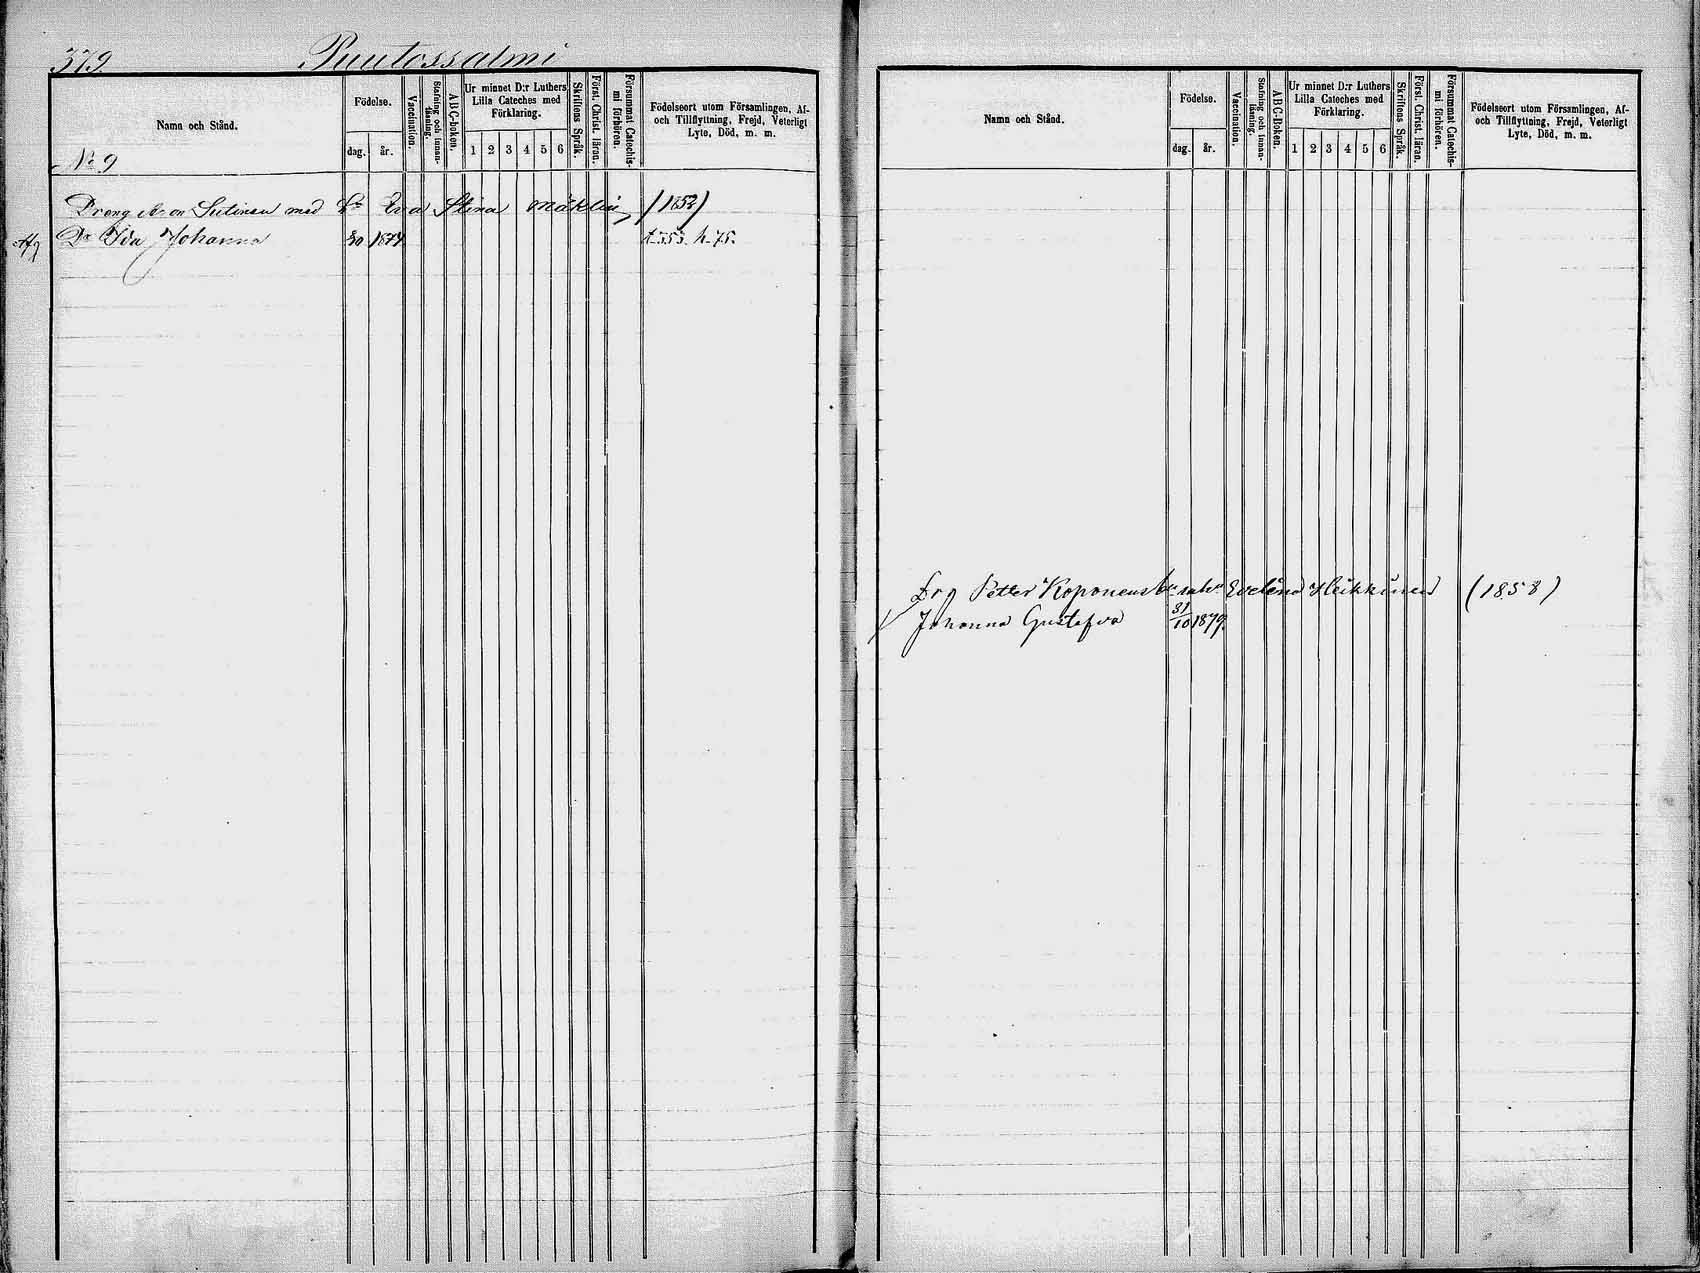 379. Puutossalmi
Namn och Stånd.
Födelse.
dag. år.
Vaccination.
Stafning och innanläsning.
ABC-boken.
Ur minnet D:r Luthers Lilla Cateches med Förklaring.
1 2 3 4 5 6
Skriftens Språk.
Först. Christ. läran.
Försummat Catechismi förhören.
Födelseort utom Församlingen, Af- och Tillflyttning, Frejd, Veterligt Lyte, Död, m. m.
No 9
Dreng Sutinen med Eva Stina Mäklin (1852)
Dr Ida Johanna 1874 t. 353. h. 75.
Namn och Stånd.
Födelse.
dag. år.
Vaccination.
Stafning och innanläsning.
ABC-Boken.
Ur minnet D:r Luthers Lilla Cateches med Förklaring.
1 2 3 4 5 6
Skriftens Språk.
Först. Christ. läran.
Försummat Catechismi förhören.
Födelseort utom Församlingen, Af- och Tillflyttning, Frejd, Veterligt Lyte, Död, m. m.
Drg Petter Koponens Evelina Heikkinen (1858)
Johanna Gustafva 31/10 1879.